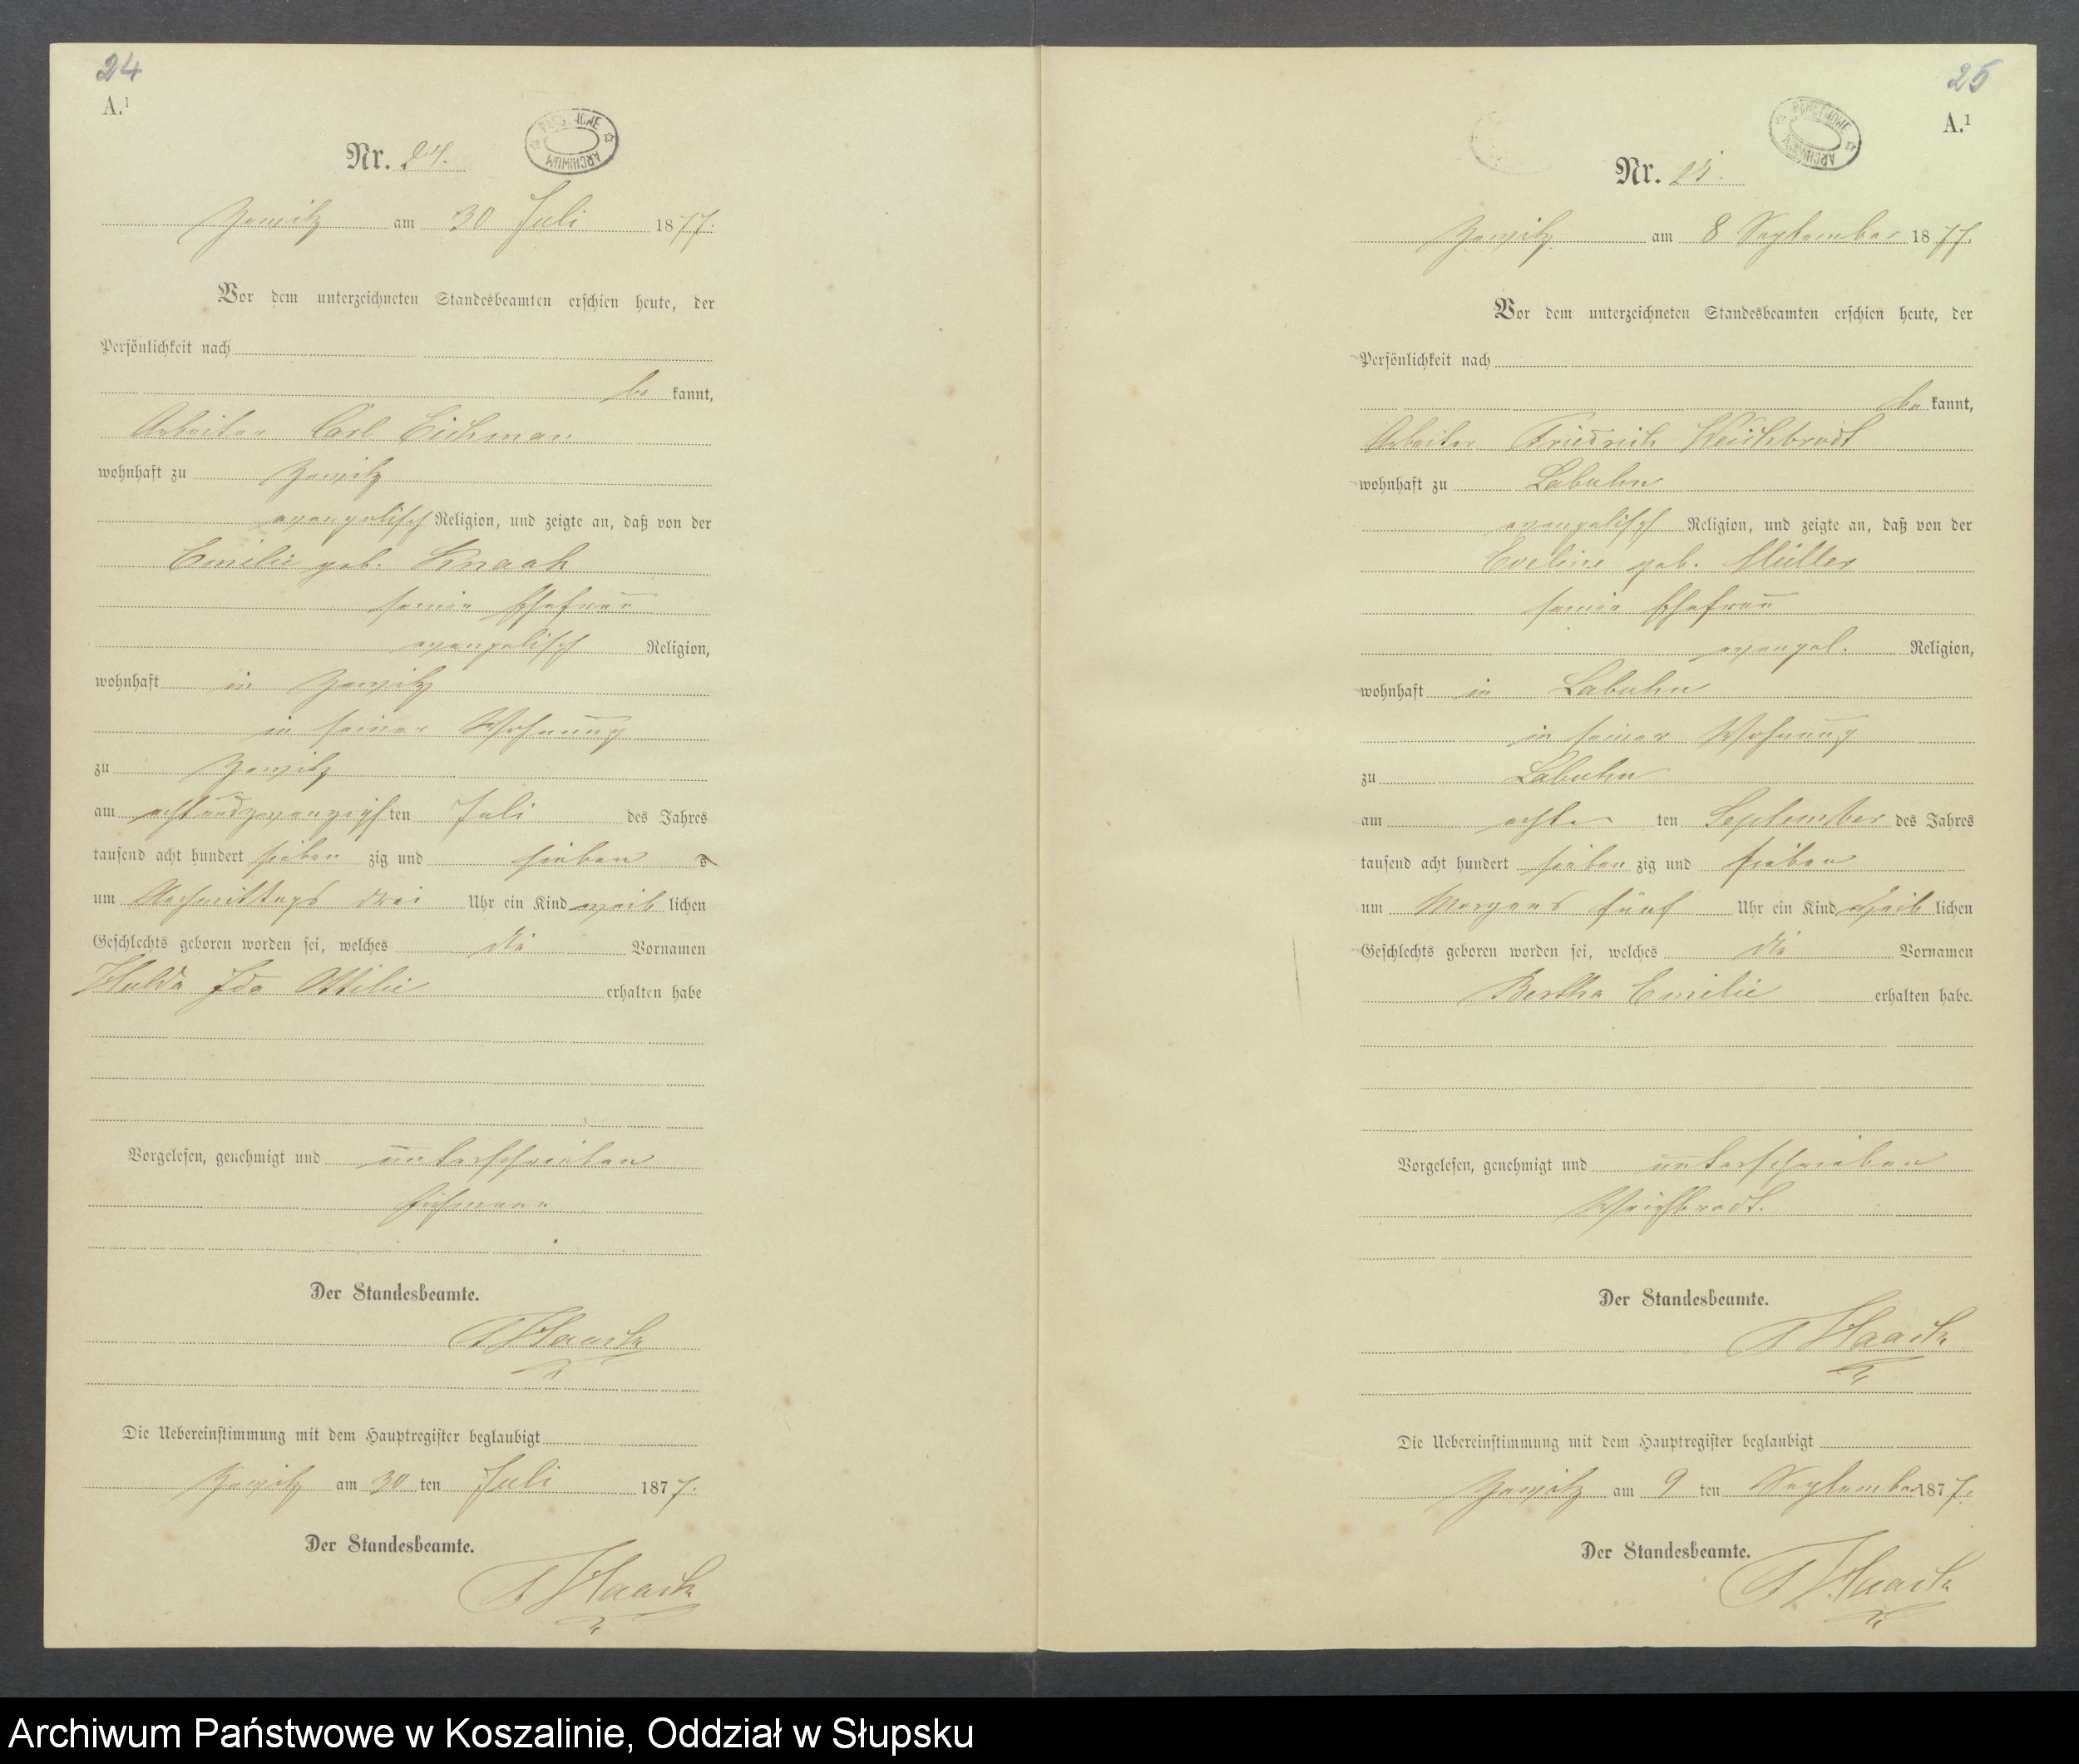 24
A.¹
Nr. 24.
PAŃSTWOWE ARCHIWUM
Zewitz am 30 Juli 1877.
Vor dem unterzeichneten Standesbeamten erschien heute, der
Persönlichkeit nach
be kannt,
Arbeiter Carl Eichmann
wohnhaft zu Zewitz
evangelisch Religion, und zeigte an, daß von der
Emilie geb. Knaak
seine Ehefrau
evangelisch Religion,
wohnhaft in Zewitz
in seiner Wohnung
zu Zewitz
am achtundzwanzigsten Juli des Jahres
tausend acht hundert sieben zig und sieben
um Nachmittags drei Uhr ein Kind weib lichen
Geschlechts geboren worden sei, welches die Vornamen
Hulda Ida Ottilie erhalten habe
Vorgelesen, genehmigt und unterschrieben
Eichmann
Der Standesbeamte.
Haack
Die Uebereinstimmung mit dem Hauptregister beglaubigt
Zewitz am 30 ten Juli 1877.
Der Standesbeamte.
Haack
25
A.¹
Nr. 25.
PAŃSTWOWE ARCHIWUM
Zewitz am 8 September 1877.
Vor dem unterzeichneten Standesbeamten erschien heute, der
Persönlichkeit nach
be kannt,
Arbeiter Friedrich Weichbrodt
wohnhaft zu Labuhn
evangelisch Religion, und zeigte an, daß von der
Eveline geb. Müller
seine Ehefrau
evangel. Religion,
wohnhaft in Labuhn
in seiner Wohnung
zu Labuhn
am achten ten September des Jahres
tausend acht hundert sieben zig und sieben
um Morgens fünf Uhr ein Kind weib lichen
Geschlechts geboren worden sei, welches die Vornamen
Bertha Emilie erhalten habe.
Vorgelesen, genehmigt und unterschrieben
Weichbrodt.
Der Standesbeamte.
Haack
Die Uebereinstimmung mit dem Hauptregister beglaubigt
Zewitz am 9 ten September 1877.
Der Standesbeamte.
Haack
Archiwum Państwowe w Koszalinie, Oddział w Słupsku